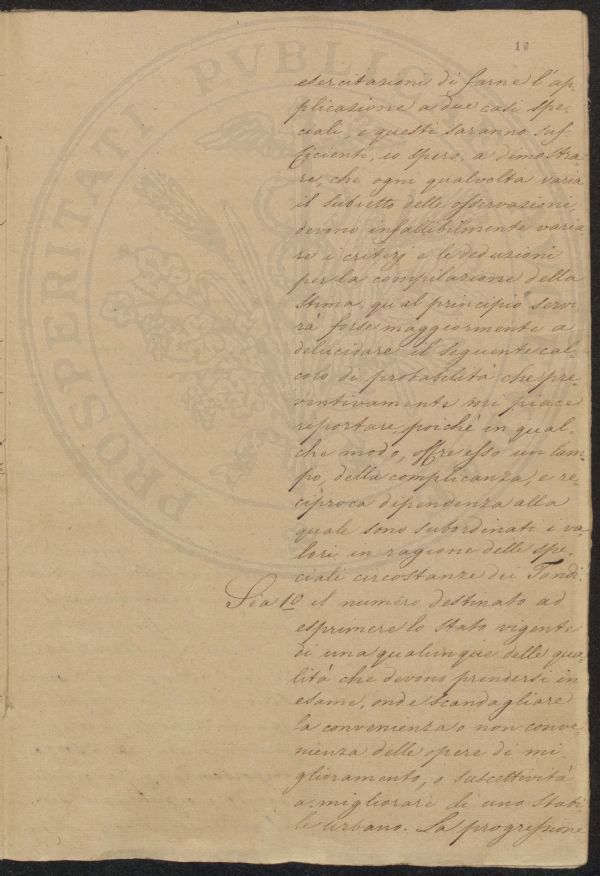 10
esercitazioni di farne l'ap-
plicazione a due casi spe-
ciali, e questi saranno suf-
ficienti, io spero, a dimostra-
re, che ogni qualvolta varia
il subietto delle osservazioni
devono infallibilmente varia
re i criterj e le deduzioni
per la compilazione della
Stima, qual principio servi
rà forse maggiormente a
delucidare il seguente cal-
colo di probabilità che pre-
ventivamente mi piace
riportare poichè in qual-
che modo, offre esso un lam-
po, della complicanza, e re-
ciproca dipendenza alla
quale sono subordinati i va-
lori in ragione delle spe-
ciali circostanze dei Fondi.
Sia 10 il numero destinato ad
esprimere lo stato vigente
di una qualunque delle qua-
lità che devono prendersi in
esame, onde scandagliare
la convenienza o non conve-
nienza delle opere di mi
glioramento, o suscettività
a migliorare di uno Stabi-
le Urbano. La progressione
PROSPERITATI PVBLICAE